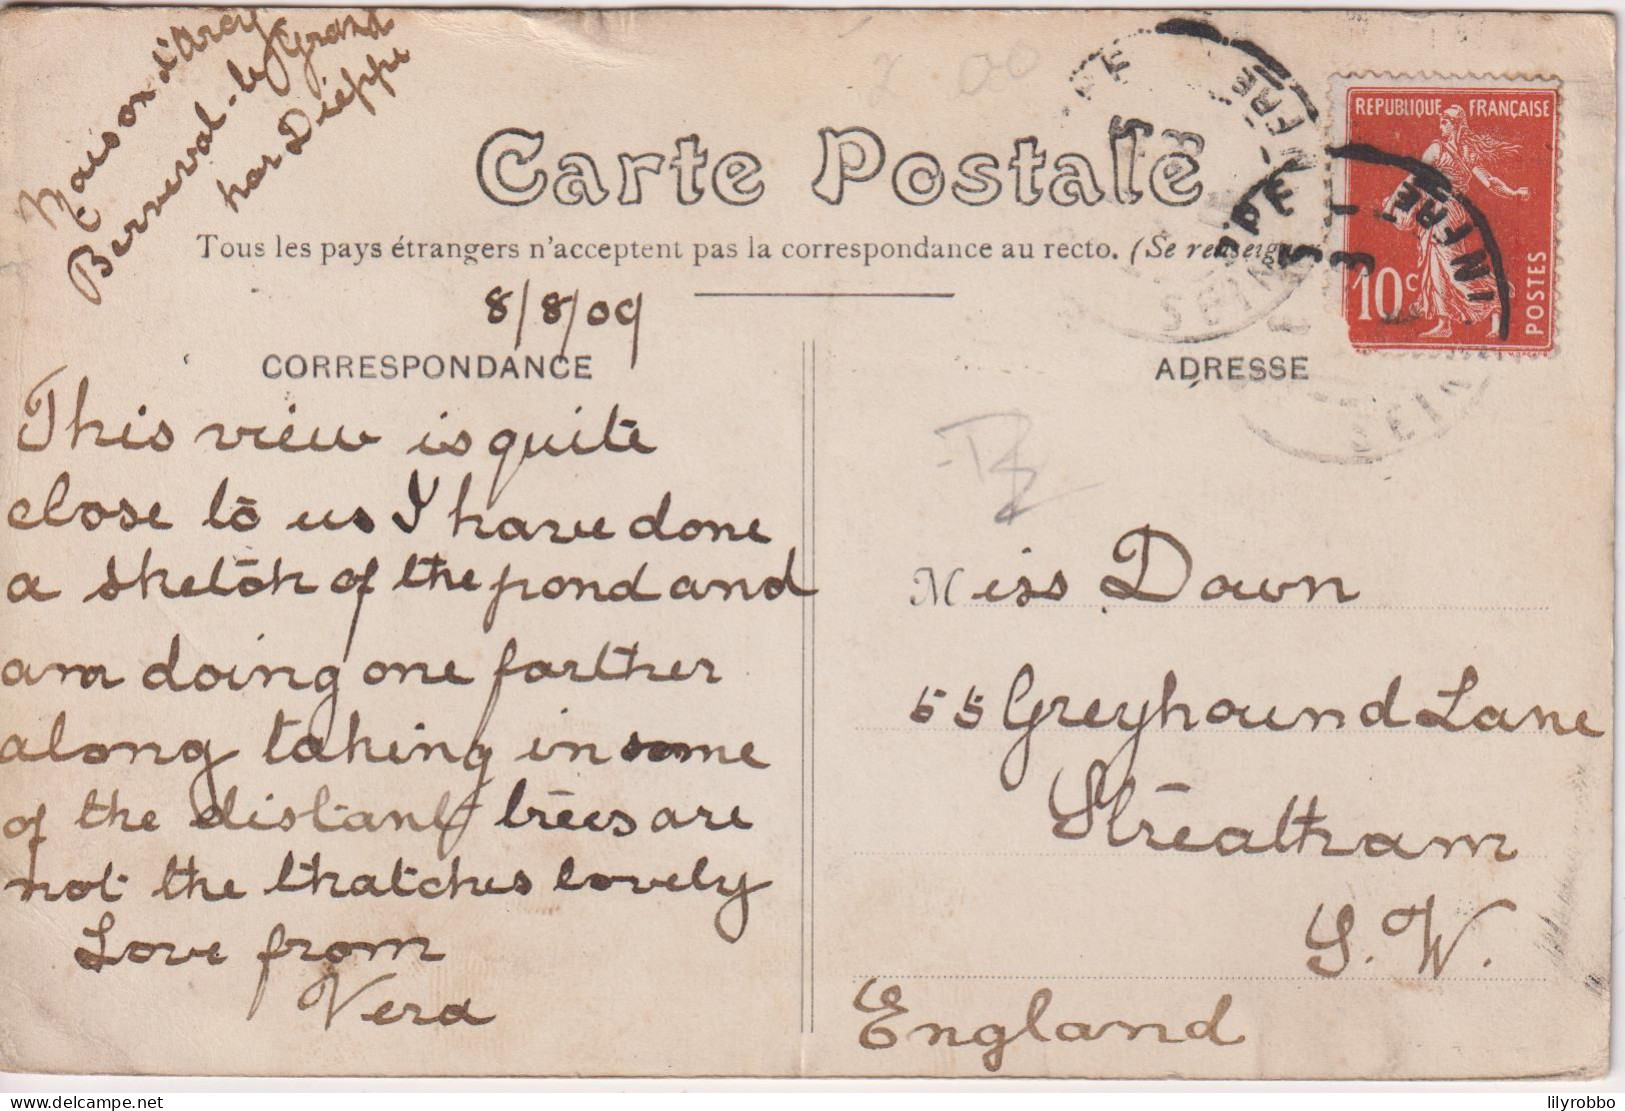 Maison d'Arcy
Berneval-le Grand
par Dieppe
Carte Postale
Tous les pays étrangers n'acceptent pas la correspondance au recto. (Se renseigner
REPUBLIQUE FRANÇAISE
10c
POSTES
8/8/09
CORRESPONDANCE
This view is quite
close to us I have done
a sketch of the pond and
am doing one farther
along taking in some
of the distant trees are
not the thatches lovely
Love from
Vera
ADRESSE
Miss Dawn
55 Greyhound Lane
Streatham
S.W.
England
lilyrobbo